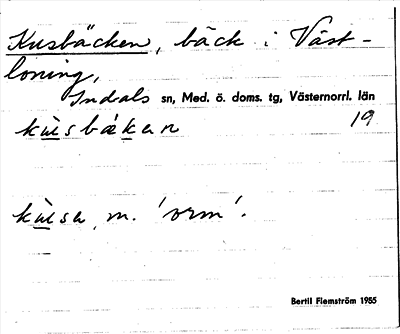 Kusbäcken, bäck i Väst-
loning,
Indals sn, Med. ö. doms. tg, Västernorrl. län
kùsbäkan 19
kùsa, m. 'orm'.
Bertil Flemström 1985